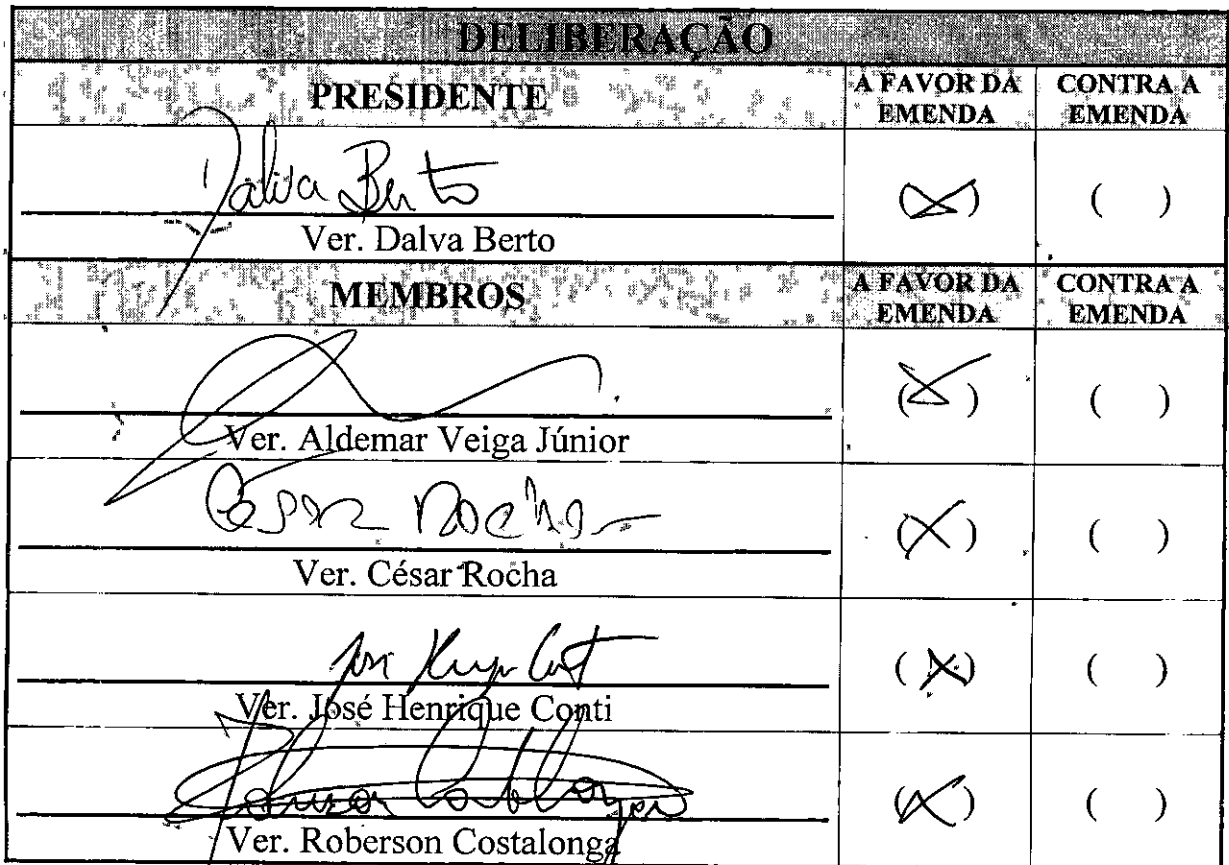 DELIBERAÇÃO
PRESIDENTE A FAVOR DA EMENDA CONTRA A EMENDA
Dalva Berto (X) ( )
Ver. Dalva Berto
MEMBROS A FAVOR DA EMENDA CONTRA A EMENDA
(X) ( )
Ver. Aldemar Veiga Júnior
Cesar Rocha (X) ( )
Ver. César Rocha
(X) ( )
Ver. José Henrique Conti
Roberson Costalonga (X) ( )
Ver. Roberson Costalonga